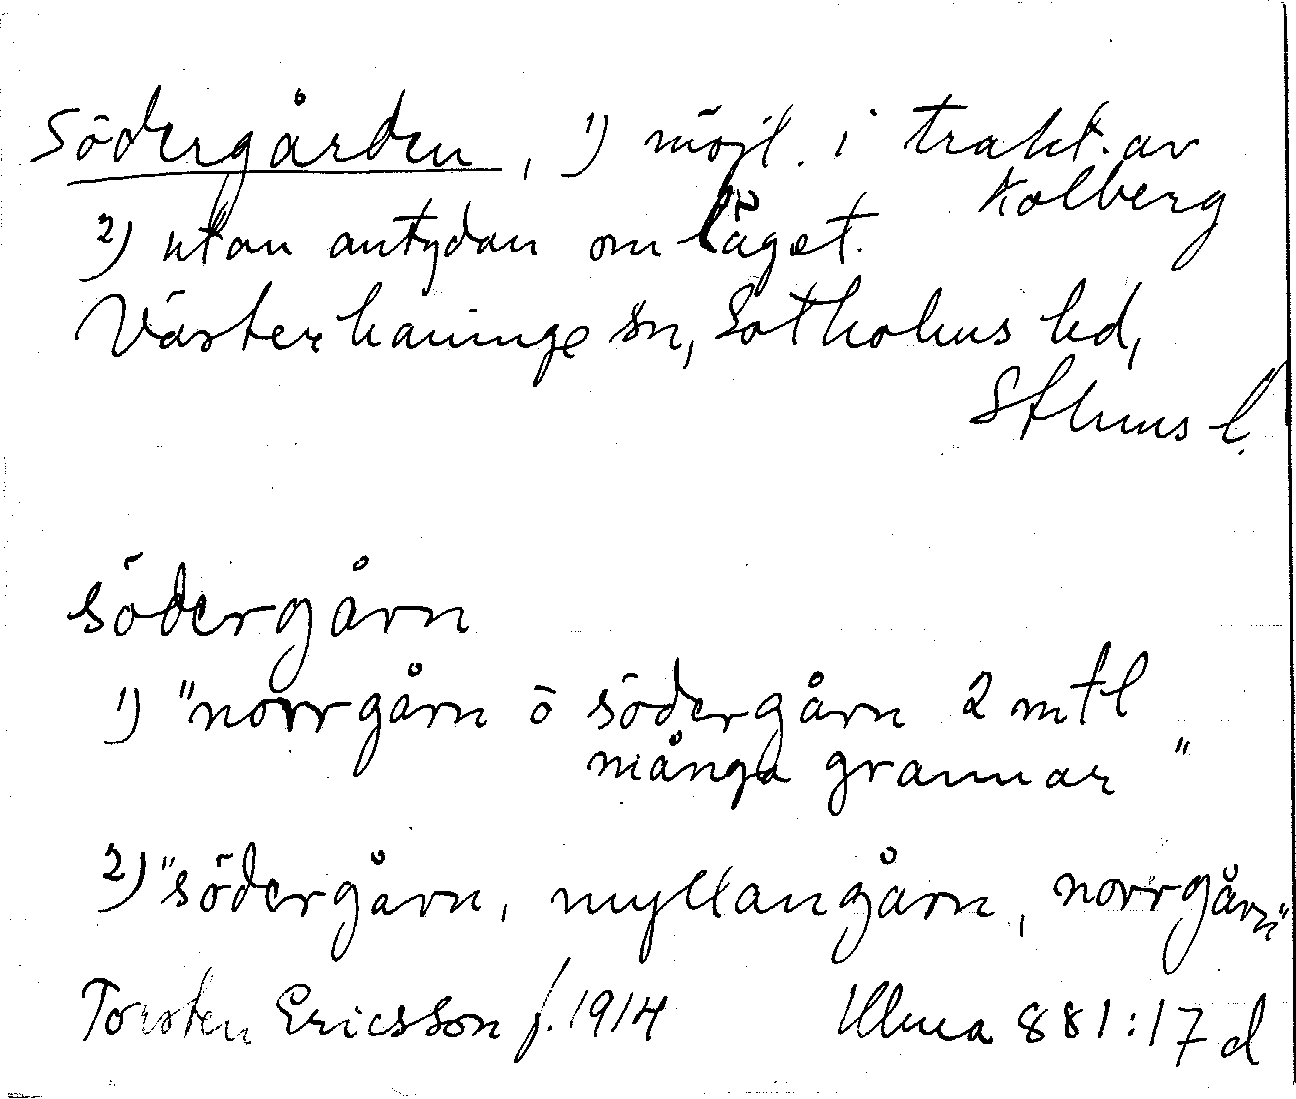 Södergården, 1) möjl. i trakt. av
Kolberg
2) utan antydan om läget.
Västerhaninge sn, Sotholms hd,
Sthlms l.
södergårn
1) "norrgårn ō södergårn 2 mtl
många grannar"
2) "södergårn, myllangårn, norrgårn"
Torsten Ericsson f. 1914 Ulma 881:17 d